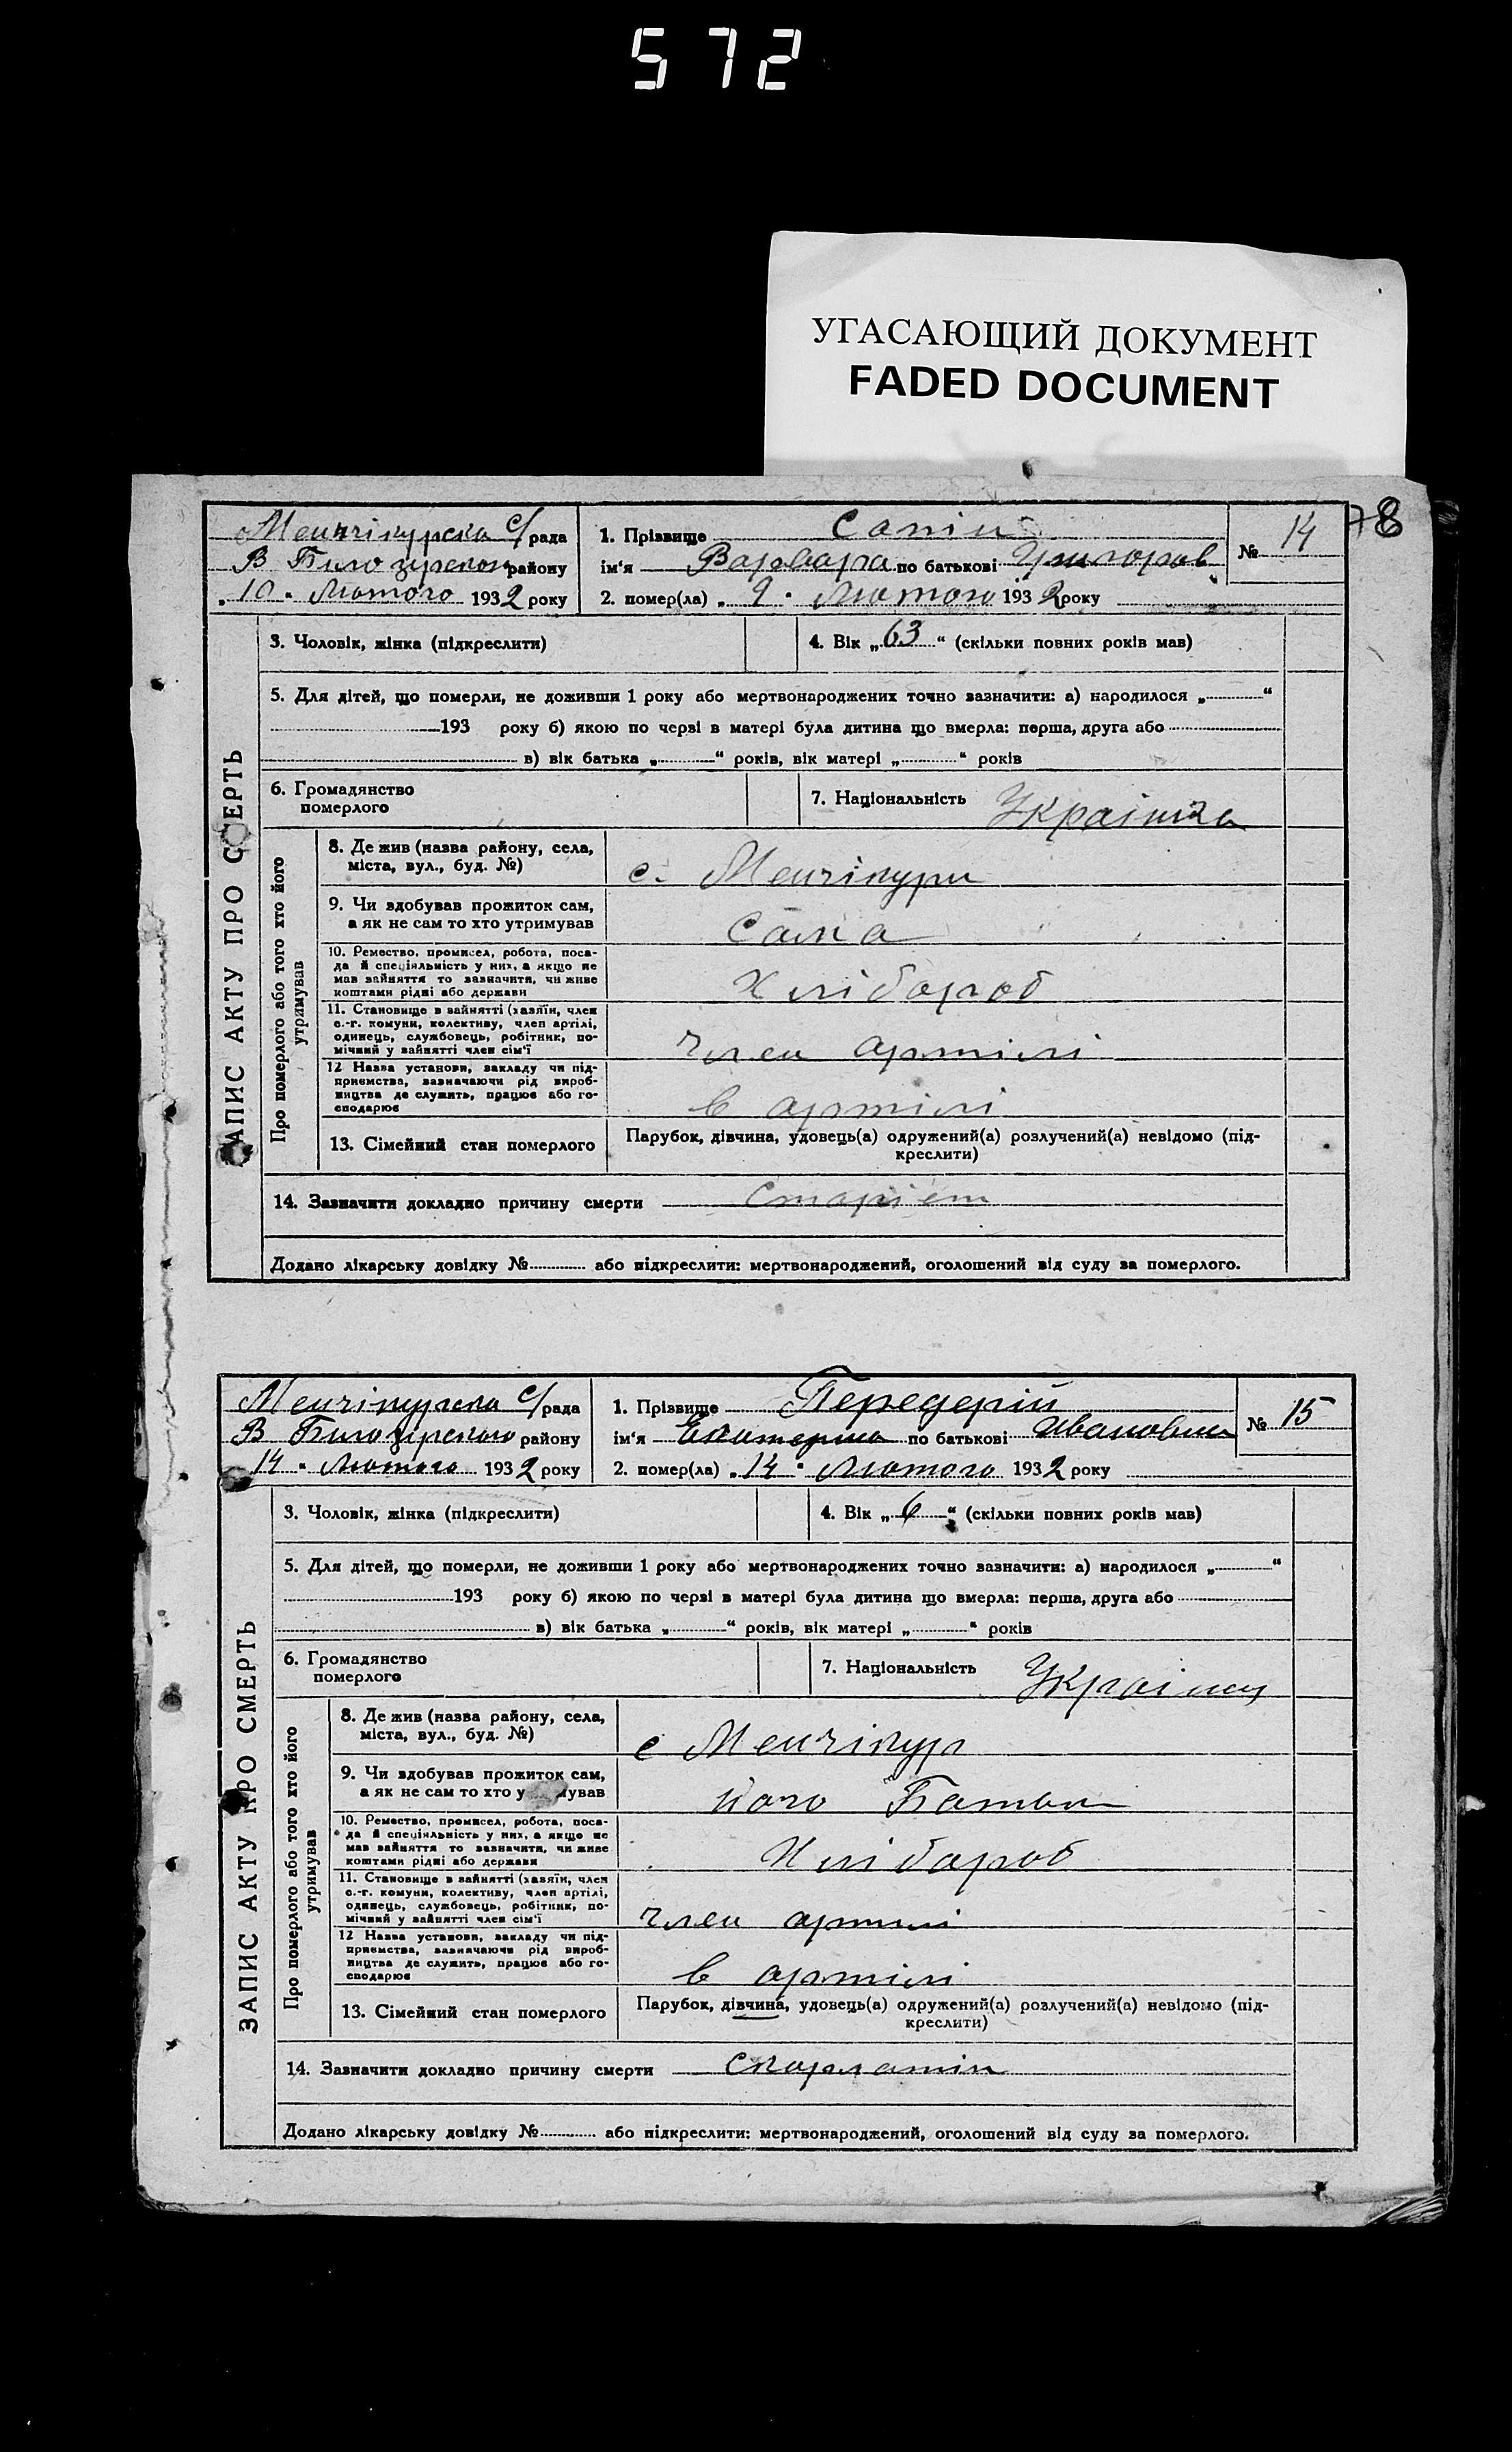 572
УГАСАЮЩИЙ ДОКУМЕНТ
FADED DOCUMENT
78
Менчікурска с/рада
В Билозирского району
„10“ Лютого 1932 року
1. Прізвище Сапін
ім'я Варвара по батькові Григоров
2. помер(ла) „9“ Лютого 1932 року
№ 14
ЗАПИС АКТУ ПРО СМЕРТЬ
3. Чоловік, жінка (підкреслити)
4. Вік „63“ (скільки повних років мав)
5. Для дітей, що померли, не доживши 1 року або мертвонароджених точно зазначити: а) народилося „ “
193 року б) якою по черві в матері була дитина що вмерла: перша, друга або
в) вік батька „ “ років, вік матері „ “ років
6. Громадянство
померлого
7. Національність Украінка
Про померлого або того хто його
утримував
8. Де жив (назва району, села,
міста, вул., буд. №)
с. Менчікури
9. Чи здобував прожиток сам,
а як не сам то хто утримував
Сама
10. Ремество, промисел, робота, поса-
да й спеціяльність у них, а якщо не
мав зайняття то зазначити, чи живе
коштами рідні або держави
Хлібороб
11. Становище в зайнятті (хазяїн, член
с.-г. комуни, колективу, член артілі,
одинець, службовець, робітник, по-
мічний у зайнятті член сім'ї
Член артілі
12 Назва установи, закладу чи під-
приємства, зазначаючи рід вироб-
ництва де служить, працює або го-
сподарює
в артілі
13. Сімейний стан померлого
Парубок, дівчина, удовець(а) одружений(а) розлучений(а) невідомо (під-
креслити)
14. Зазначити докладно причину смерти
Додано лікарську довідку № або підкреслити: мертвонароджений, оголошений від суду за померлого.
Менчікурска с/рада
В Билозирского району
14 „ Лютого 1932 року
1. Прізвище Передерій
ім'я Екатерина по батькові Ивановна
2. помер(ла) „14“ Лютого 1932 року
№ 15
ЗАПИС АКТУ ПРО СМЕРТЬ
3. Чоловік, жінка (підкреслити)
4. Вік „6“ (скільки повних років мав)
5. Для дітей, що померли, не доживши 1 року або мертвонароджених точно зазначити: а) народилося „ “
193 року б) якою по черзі в матері була дитина що вмерла: перша, друга або
в) вік батька „ “ років, вік матері „ “ років
6. Громадянство
померлого
7. Національність
Про померлого або того хто його
утримував
8. Де жив (назва району, села,
міста, вул., буд. №)
с Менчікур
9. Чи здобував прожиток сам,
а як не сам то хто утримував
його Батько
10. Ремество, промисел, робота, поса-
да й спеціяльність у них, а якщо не
мав зайняття то зазначити, чи живе
коштами рідні або держави
Хлібороб
11. Становище в зайнятті (хазяїн, член
с.-г. комуни, колективу, член артілі,
одинець, службовець, робітник, по-
мічний у зайнятті член сім'ї
член артілі
12 Назва установи, закладу чи під-
приємства, зазначаючи рід вироб-
ництва де служить, працює або го-
сподарює
в артілі
13. Сімейний стан померлого
Парубок, дівчина, удовець(а) одружений(а) розлучений(а) невідомо (під-
креслити)
14. Зазначити докладно причину смерти скарлатін
Додано лікарську довідку № або підкреслити: мертвонароджений, оголошений від суду за померлого.